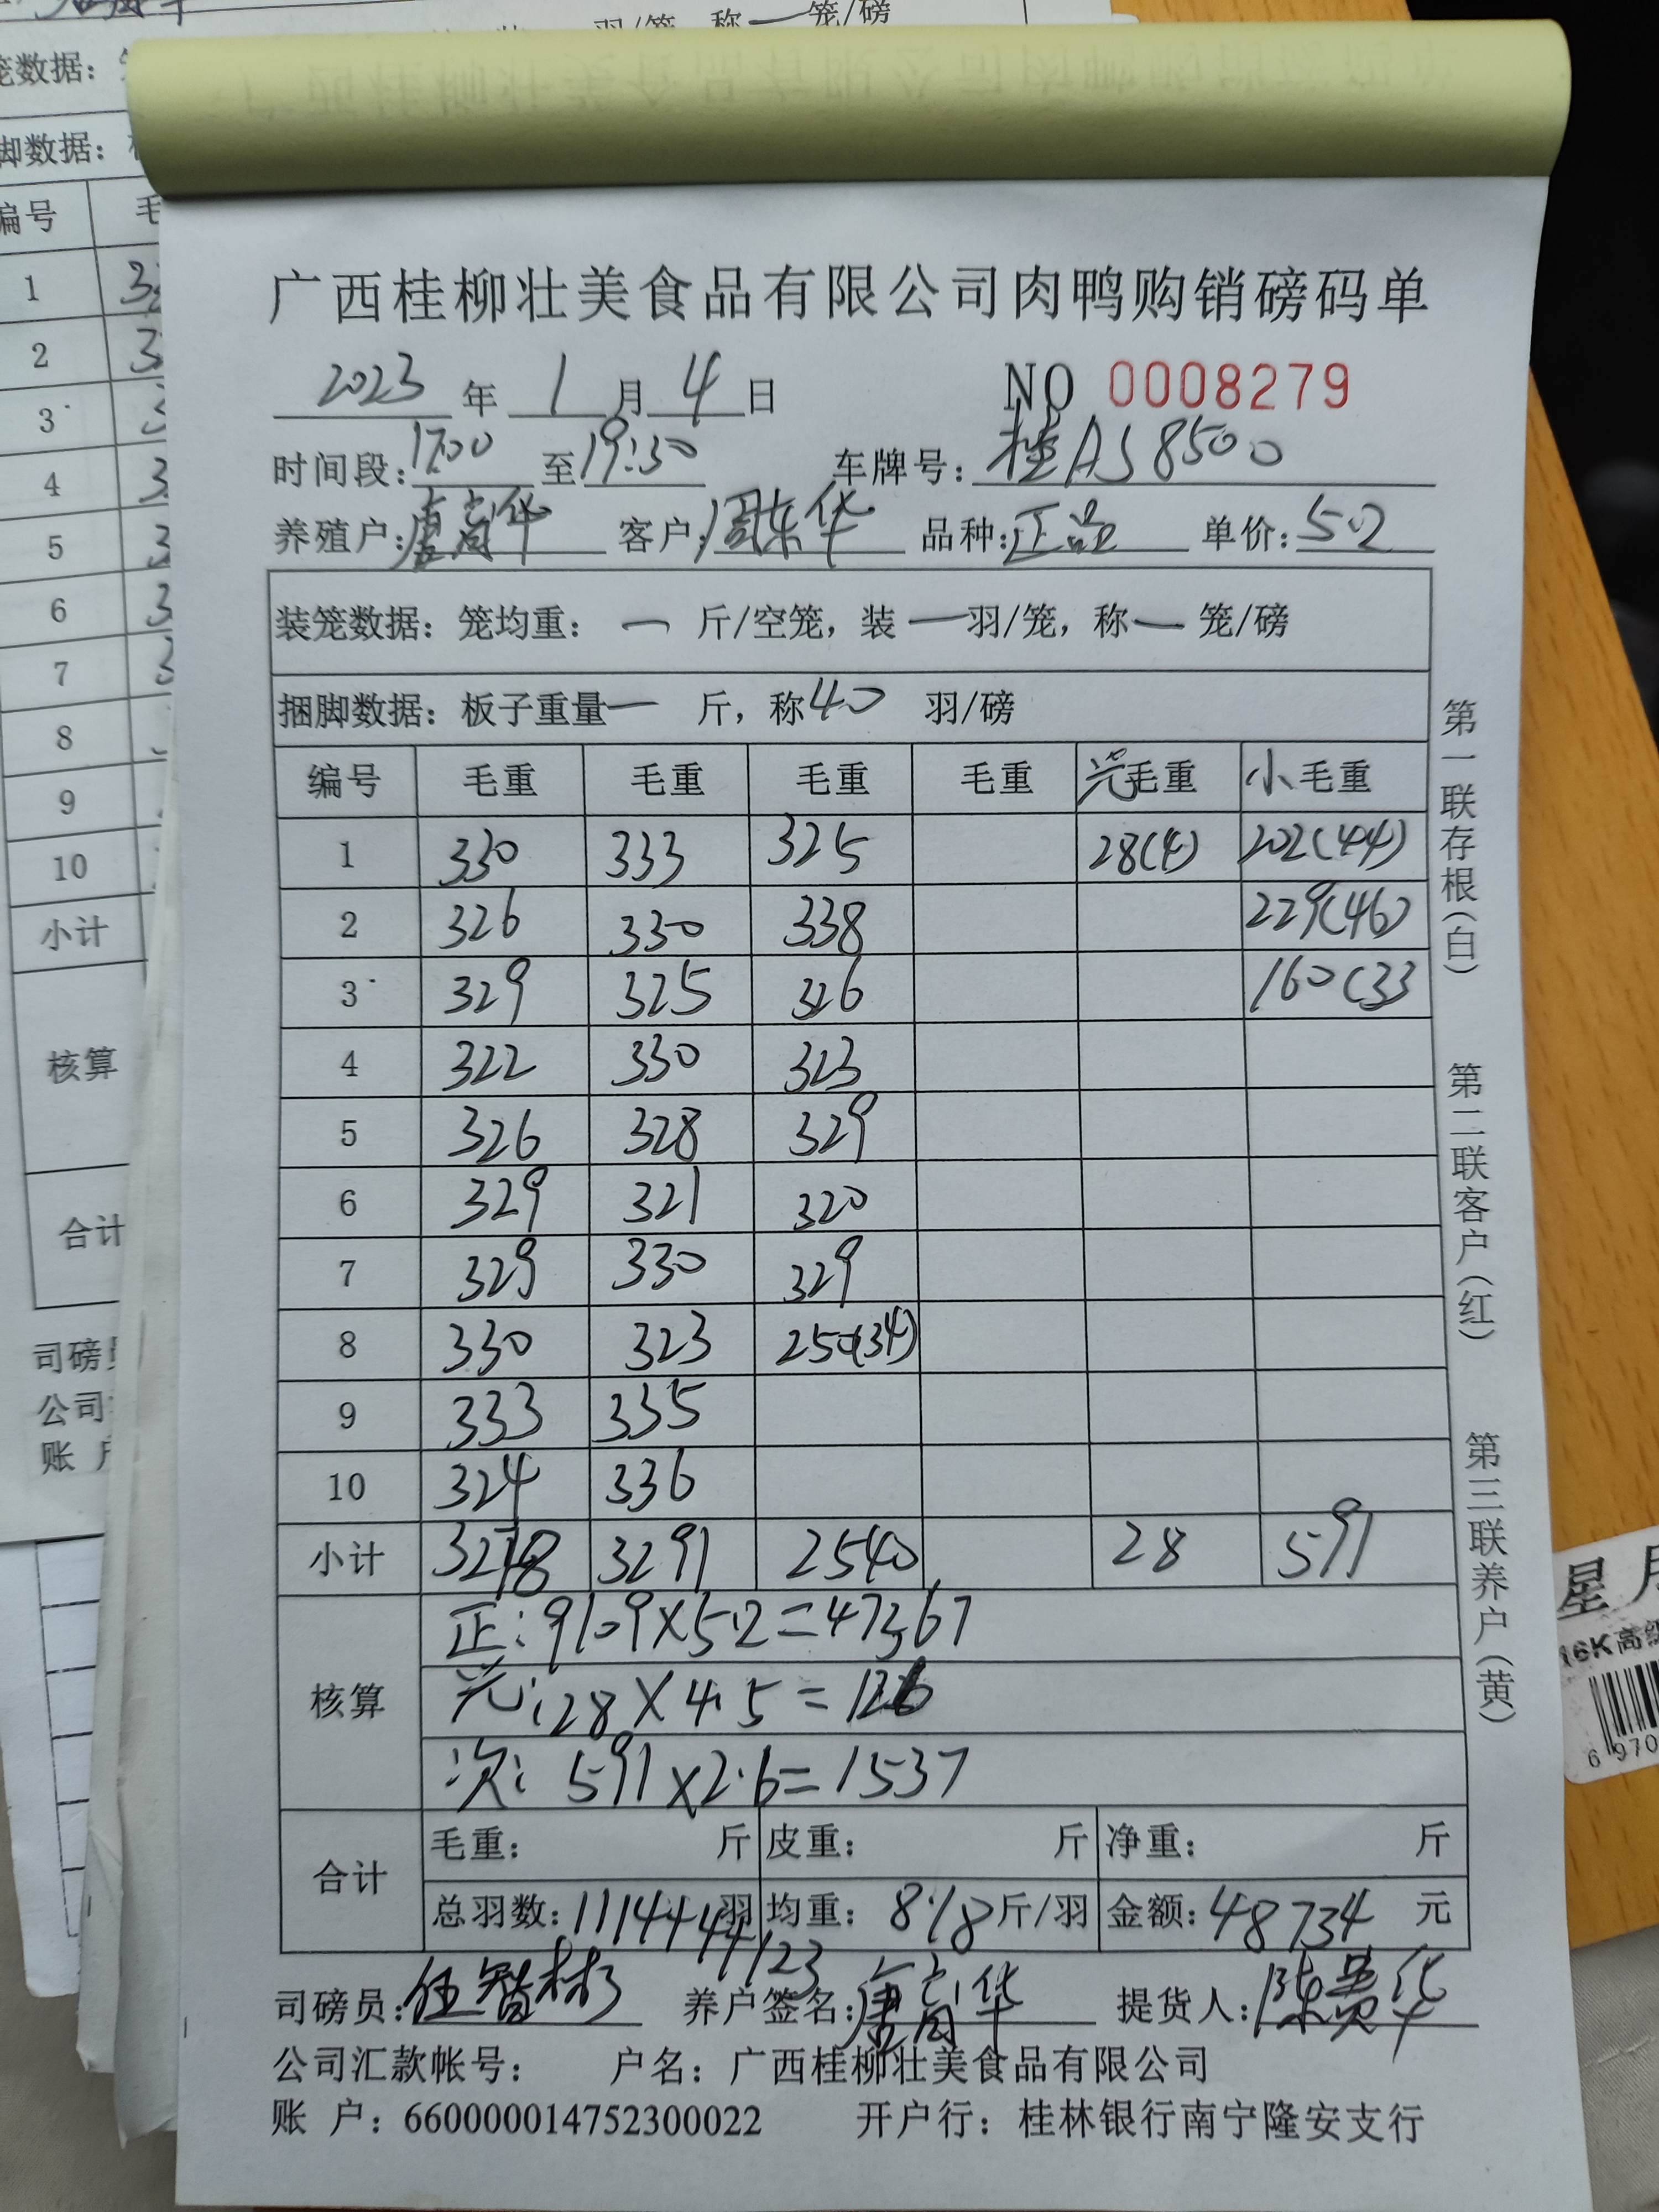 羽/笼, 称一笼/磅
笼数据:
脚数据:
编号
1
2
3
4
5
6
7
8
9
10
小计
核算
合计
司磅
公司
账 户
广西桂柳壮美食品有限公司肉鸭购销磅码单
2023 年 1 月 4 日 NO 0008279
时间段: 17:00 至 19:30 车牌号: 桂AS8500
养殖户: 唐高华 客户: 周东华 品种: 正品 单价: 5.2
装笼数据: 笼均重: 一 斤/空笼, 装 一 羽/笼, 称 一 笼/磅
捆脚数据: 板子重量 一 斤, 称 40 羽/磅
编号 毛重 毛重 毛重 毛重 光毛重 小毛重
1 330 333 325 28(4) 202(44)
2 326 330 338 229(46)
3 329 325 326 160(33
4 322 330 323
5 326 328 329
6 329 321 320
7 329 330 329
8 330 323 250(34)
9 333 335
10 324 336
小计 3278 3291 2540 28 591
核算
正: 9109×5.2=47367
光: 28×4.5=126
次: 591×2.6=1537
合计 毛重: 斤 皮重: 斤 净重: 斤
总羽数: 1114+4+123 羽 均重: 8.18 斤/羽 金额: 48734 元
司磅员: 伍智彬 养户签名: 唐高华 提货人: 陈贵华
公司汇款帐号: 户名: 广西桂柳壮美食品有限公司
账 户: 660000014752300022 开户行: 桂林银行南宁隆安支行
第一联存根(白)
第二联客户(红)
第三联养户(黄)
星月
16K高级
6 970